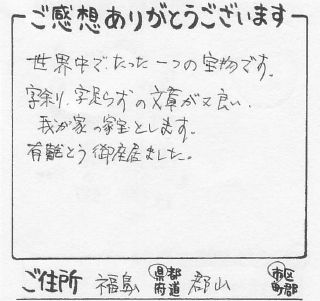 ご感想ありがとうございます
世界中で、たった一つの宝物です。
字余り、字足らずの文章が又良い、
我が家の家宝とします。
有難とう御座居ました。
ご住所 福島 県都府道 郡山 市区町郡